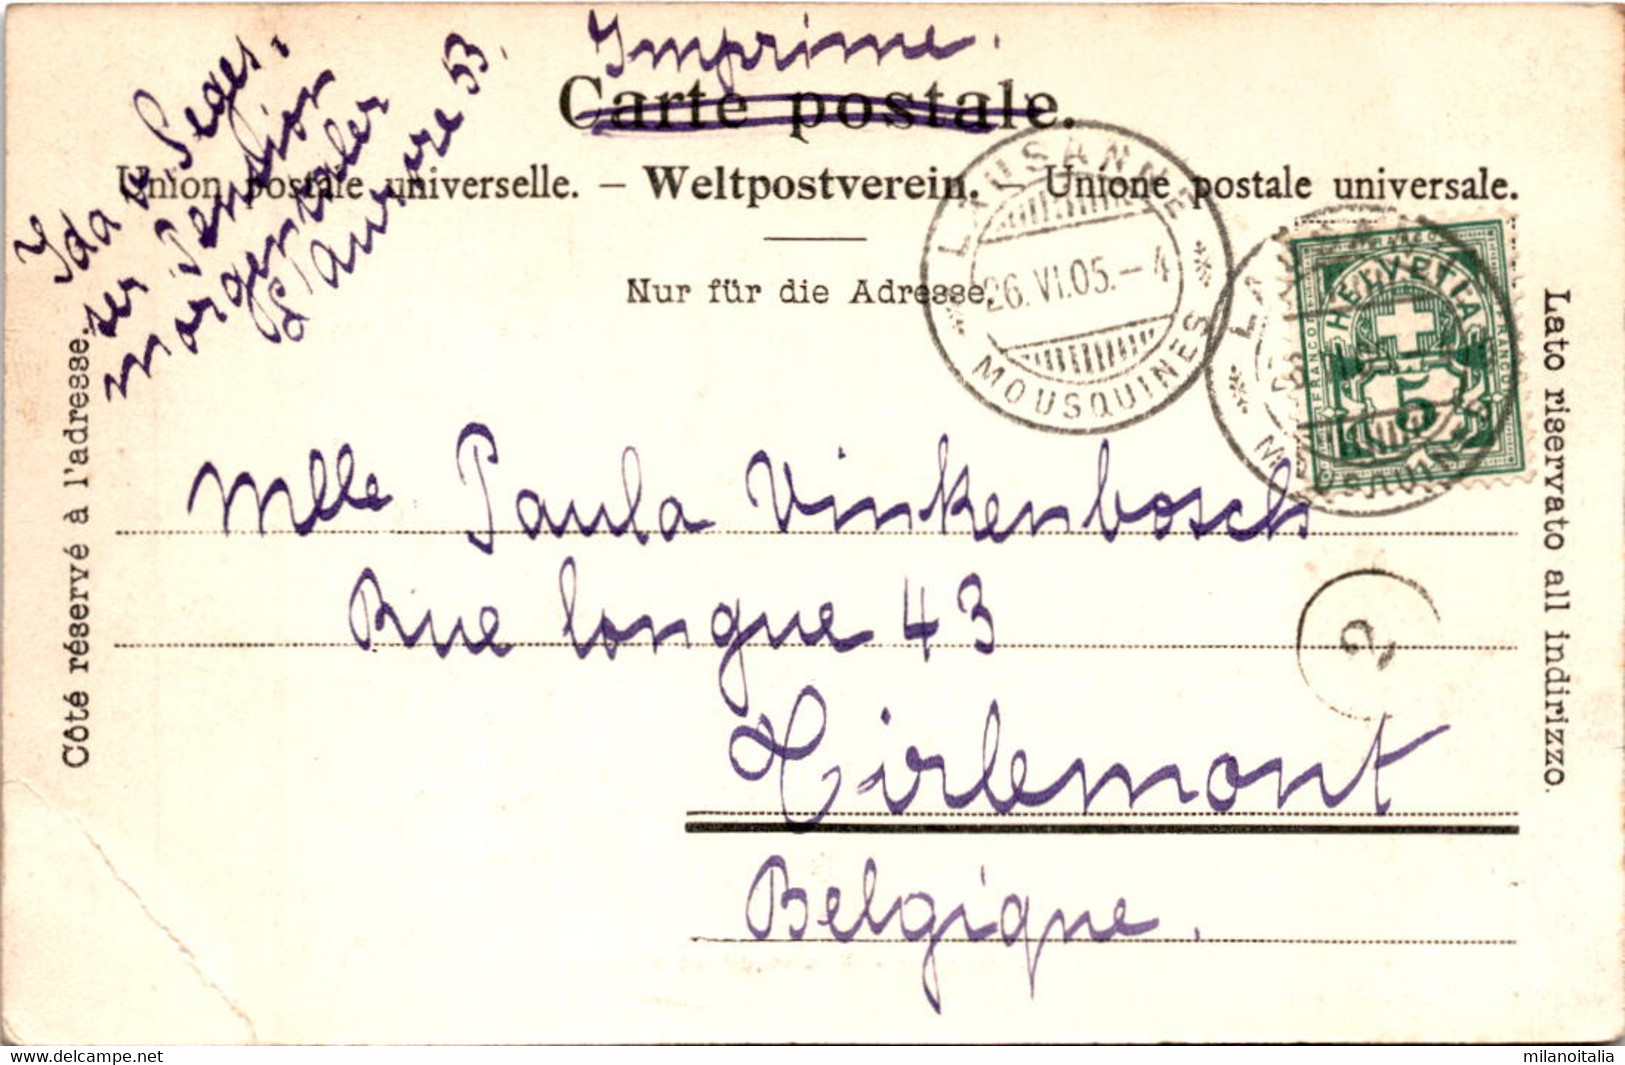 Imprime.
Carte postale.
Union postale universelle. — Weltpostverein. — Unione postale universale.
Nur für die Adresse.
Côté réservé à l'adresse.
Lato riservato all indirizzo.
Ida
Pension
Morgenthaler
53.
LAUSANNE
26.VI.05.-4
MOUSQUINES
HELVETIA
FRANCO
FRANCO
5
Mlle Paula Vinkenbosch
Rue longue 43
Tirlemont
Belgique.
2
delcampe.net
milanoitalia